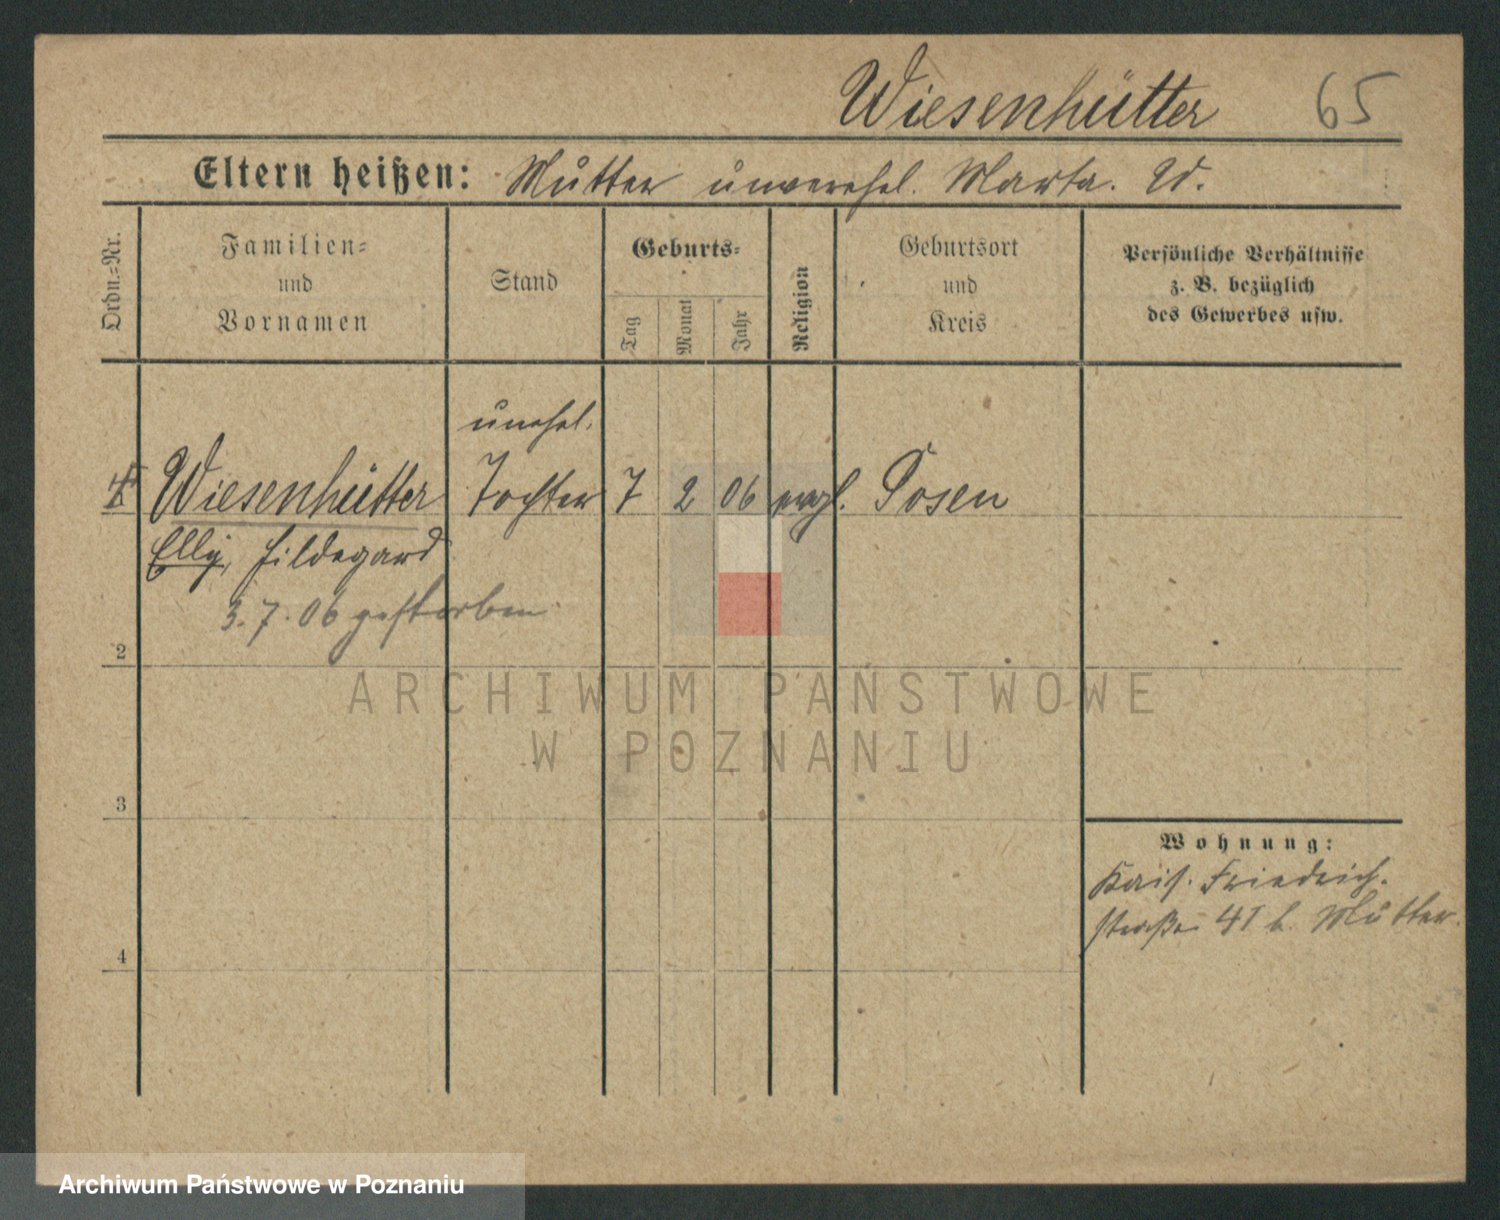 Wiesenhütter 65
Eltern heißen: Mutter unverehel. Marta. W.
Ordn.=Nr.
Familien=
und
Vornamen
Stand
Geburts=
Tag
Monat
Jahr
Religion
Geburtsort
und
Kreis
Persönliche Verhältnisse
z. B. bezüglich
des Gewerbes usw.
unehel.
Wiesenhütter Tochter 7 2 06 evgl. Posen
Elly, Hildegard
3. 7. 06 gestorben
2
3
4
Wohnung:
Kais. Friedrich-
straße 41 b. Mutter.
ARCHIWUM PAŃSTWOWE
W POZNANIU
Archiwum Państwowe w Poznaniu